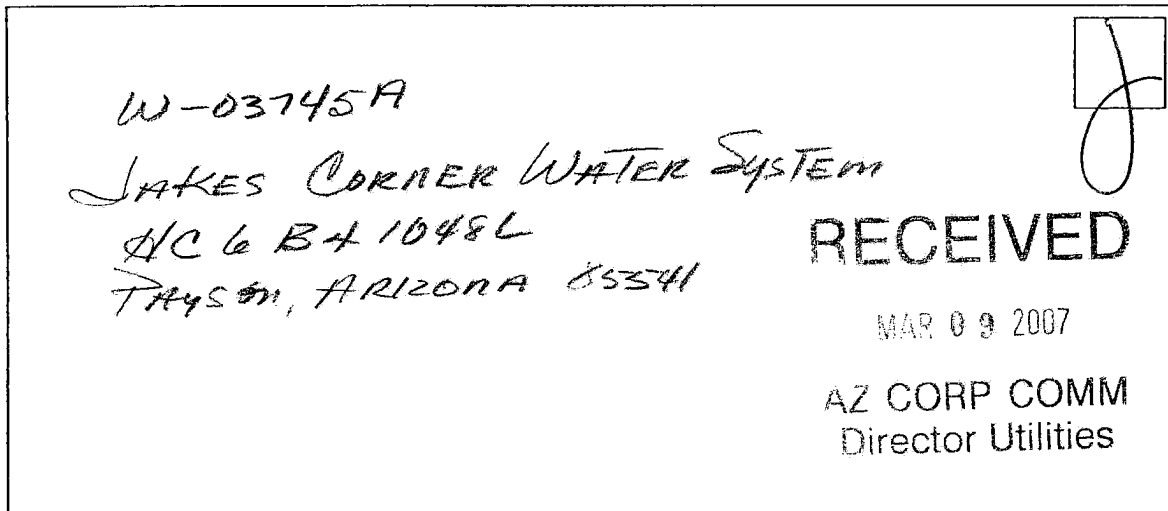 W-03745A
JAKES CORNER WATER SYSTEM
HC 6 BX 1048L
PAYSON, ARIZONA 85541
RECEIVED
MAR 09 2007
AZ CORP COMM
Director Utilities